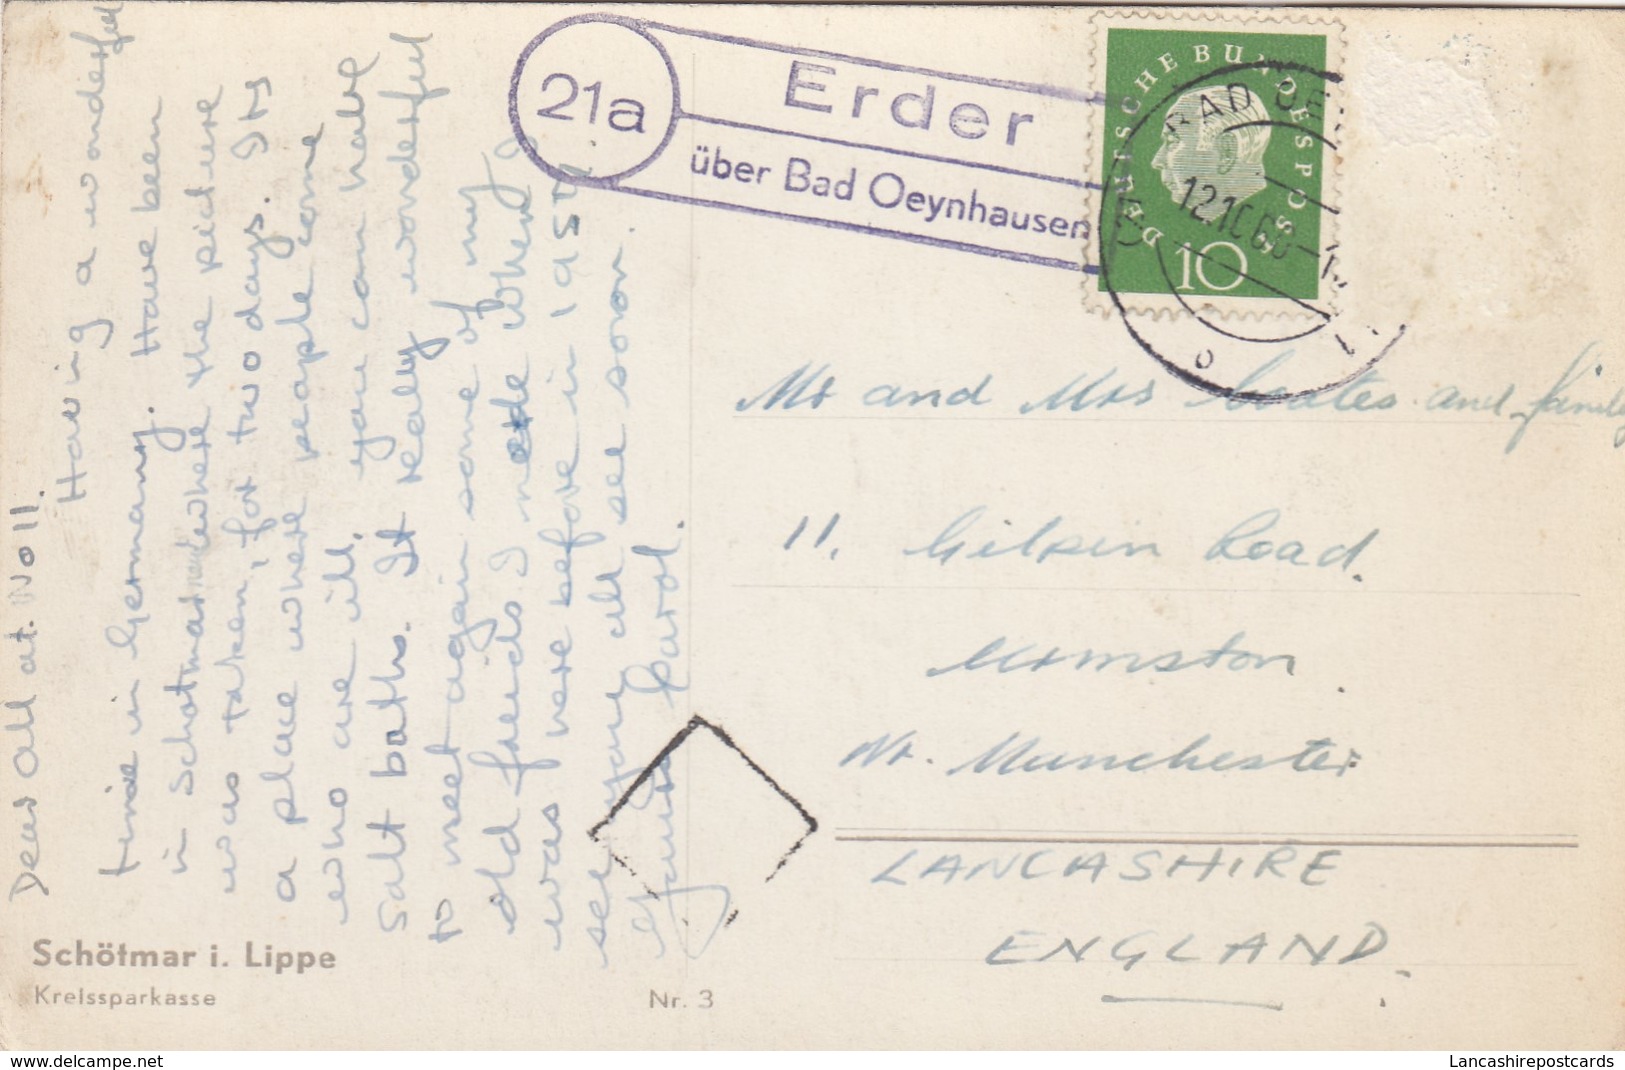 Dear All at. No 11.
Having a wonderful
time in Germany. Have been
in Schotmar where the picture
was taken, for two days. Its
a place where people come
who are ill. you can have
salt baths. It really wonderful
to meet again some of my
old freinds I made when I
was here before in 195
see you all see soon.
Carol.
Schötmar i. Lippe
Kreissparkasse
Nr. 3
21a
Erder
über Bad Oeynhausen
DEUTSCHE BUNDESPOST
10
BAD OE
12.10.60
Mr and Mrs Coates and family
11. Gilpin Road.
Urmston.
Nr. Manchester
LANCASHIRE
ENGLAND.
www.delcampe.net
Lancashirepostcards